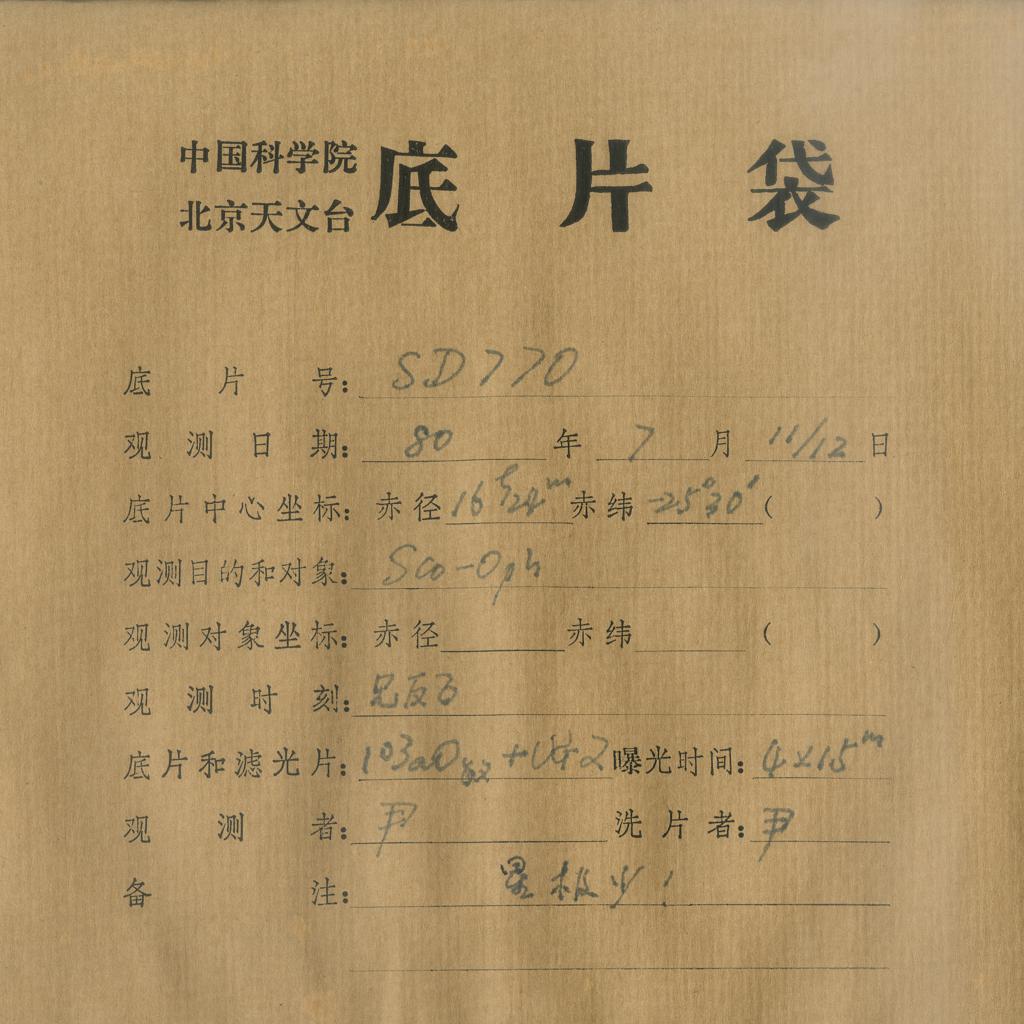 中国科学院
北京天文台
底片袋
底片号: SD770
观测日期: 80 年 7 月 11/12 日
底片中心坐标: 赤径 16ʰ24ᵐ 赤纬 -25°30′ ( )
观测目的和对象: Sco-Oph
观测对象坐标: 赤径 赤纬 ( )
观测时刻: 见反面
底片和滤光片: 103aO + 曝光时间: 4×15ᵐ
观测者: 尹 洗片者: 尹
备注: 星极少!